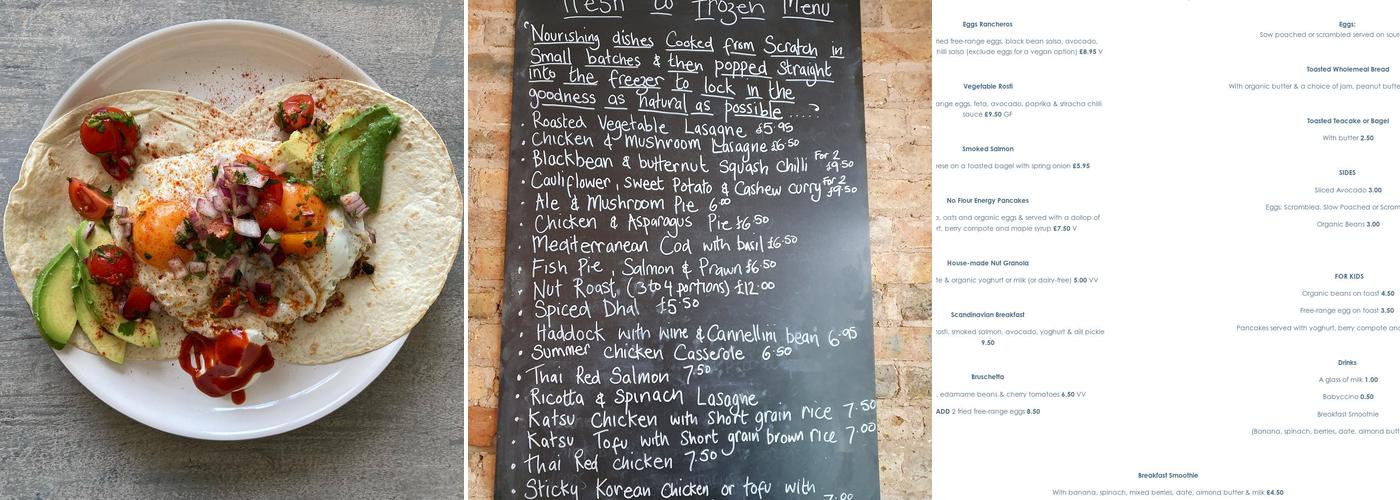 Fresh to Frozen Menu
Nourishing dishes Cooked from Scratch in
Small batches & then popped straight
into the freezer to lock in the
goodness as natural as possible .....
Roasted Vegetable Lasagne £5.95
Chicken & Mushroom Lasagne £6.50
Blackbean & butternut Squash Chilli For 2 £9.50
Cauliflower, sweet Potato & Cashew curry For 2 £9.50
Ale & Mushroom Pie 6.00
Chicken & Asparagus Pie £6.50
Mediterranean Cod with basil £6.50
Fish Pie, Salmon & Prawn £6.50
Nut Roast (3 to 4 portions) £12.00
Spiced Dhal £5.50
Haddock with wine & Cannellini bean 6.95
Summer Chicken Casserole 6.50
Thai Red Salmon 7.50
Ricotta & Spinach Lasagne
Katsu Chicken with Short grain rice 7.50
Katsu Tofu with Short grain brown rice 7.00
Thai Red chicken 7.50
Sticky Korean Chicken or tofu with
7.00
Eggs Rancheros
ried free-range eggs, black bean salsa, avocado,
hilli salsa (exclude eggs for a vegan option) £8.95 V
Vegetable Rosti
ange eggs, feta, avocado, paprika & sriracha chilli
sauce £9.50 GF
Smoked Salmon
ese on a toasted bagel with spring onion £5.95
No Flour Energy Pancakes
, oats and organic eggs & served with a dollop of
rt, berry compote and maple syrup £7.50 V
House-made Nut Granola
te & organic yoghurt or milk (or dairy-free) 5.00 VV
Scandinavian Breakfast
osti, smoked salmon, avocado, yoghurt & dill pickle
9.50
Bruschetta
, edamame beans & cherry tomatoes 6.50 VV
ADD 2 fried free-range eggs 8.50
Eggs:
Sow poached or scrambled served on sour
Toasted Wholemeal Bread
With organic butter & a choice of jam, peanut butte
Toasted Teacake or Bagel
With butter 2.50
SIDES
Sliced Avocado 3.00
Eggs: Scrambled, Slow Poached or Scram
Organic Beans 3.00
FOR KIDS
Organic beans on toast 4.50
Free-range egg on toast 3.50
Pancakes served with yoghurt, berry compote and
Drinks
A glass of milk 1.00
Babyccino 0.50
Breakfast Smoothie
(Banana, spinach, berries, date, almond butt
Breakfast Smoothie
With banana, spinach, mixed berries, date, almond butter & milk £4.50